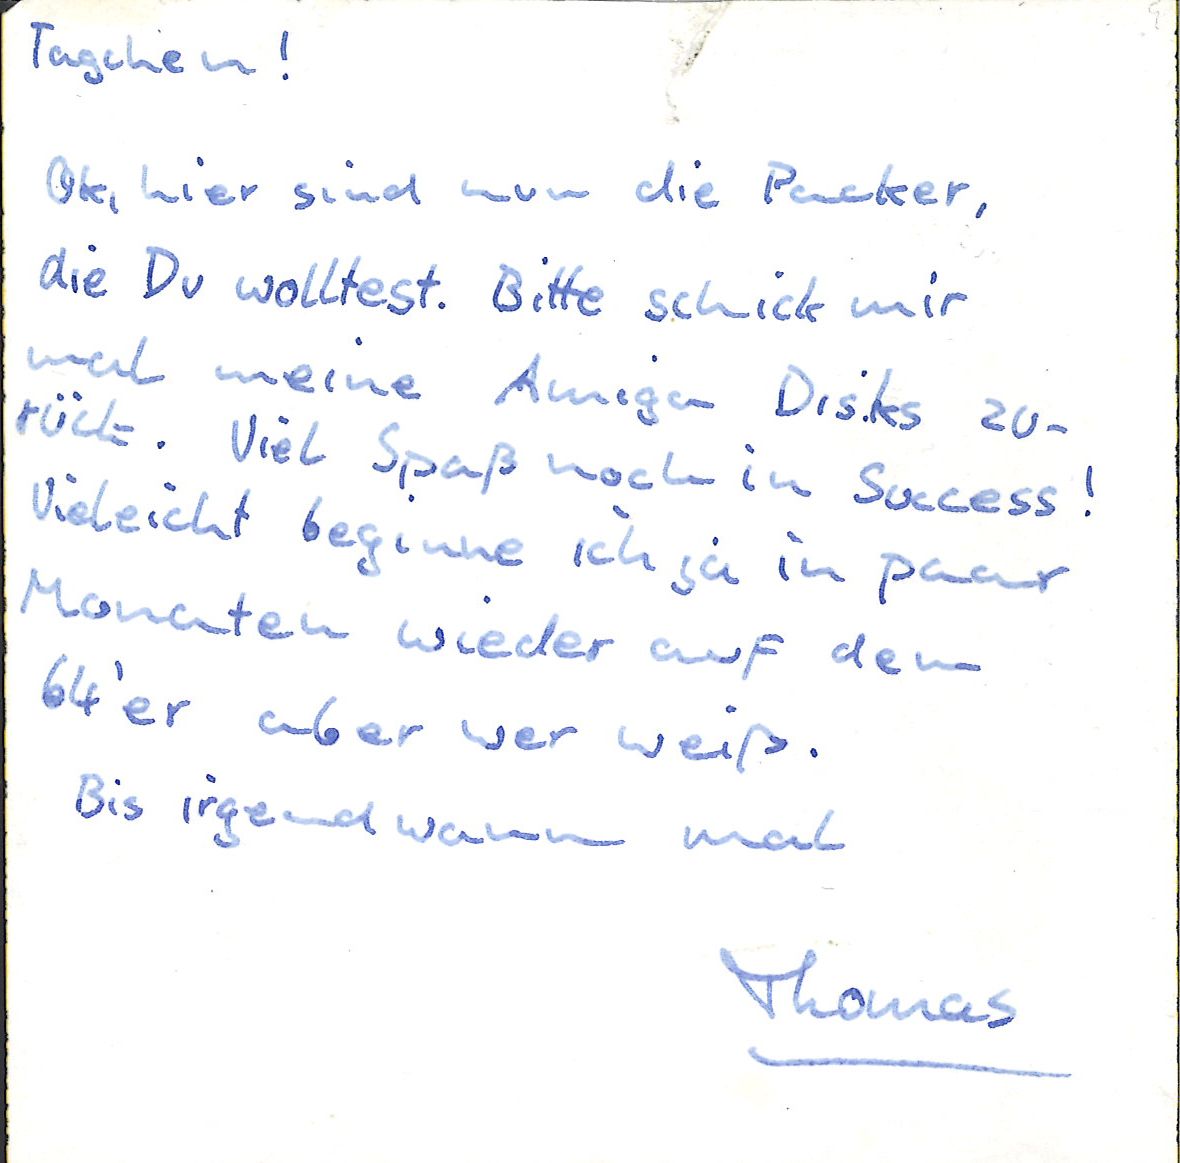 Tagchen!
Ok, hier sind nun die Packer,
die Du wolltest. Bitte schick mir
mal meine Amiga Disks zu-
rück. Viel Spaß noch in Success!
Vieleicht beginne ich ja in paar
Monaten wieder auf dem
64'er aber wer weiß.
Bis irgendwann mal
Thomas